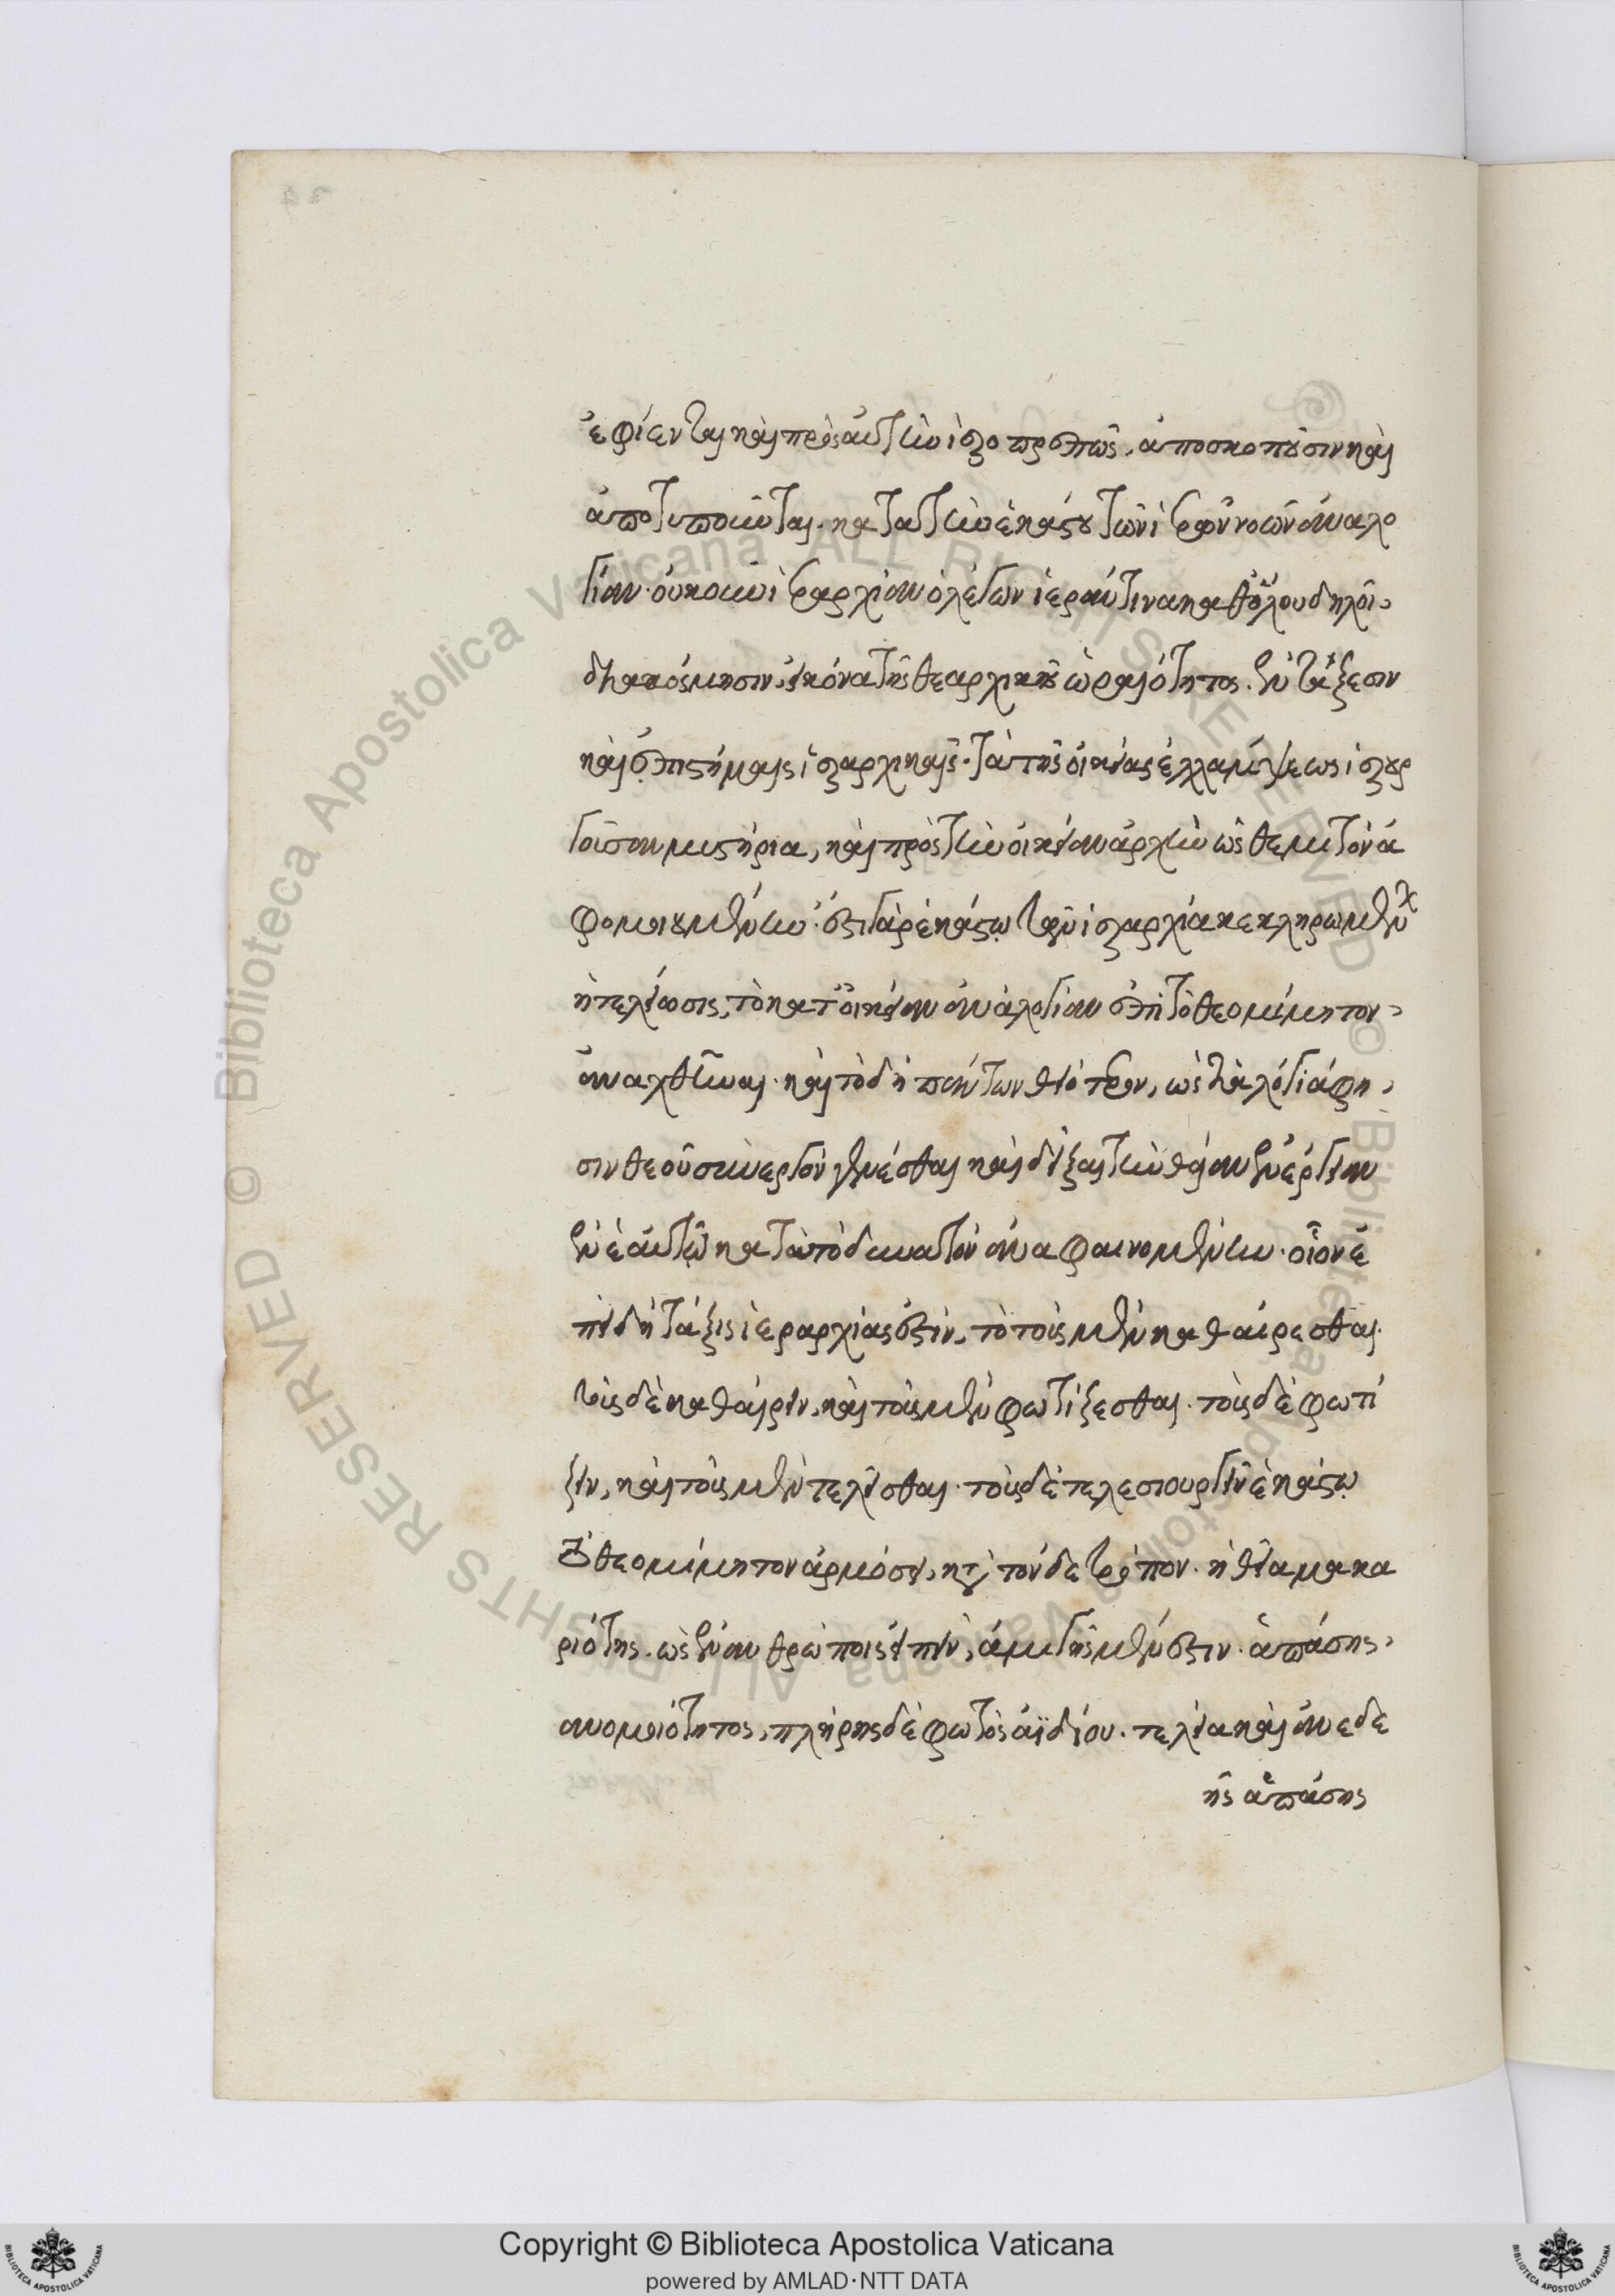 ἐφίενται καὶ πρὸς αὐτὴν ἱεροπρεπῶς. ἀποσκοποῦσιν καὶ
ἀποτυποῦνται. κατὰ τὴν ἑκάστου τῶν ἱερῶν νοῶν ἀναλο
γίαν. οὐκοῦν ἱεραρχίαν ὁ λέγων ἱεράν τινα καθόλου δηλοῖ
διακόσμησιν, εἰκόνα τῆς θεαρχικῆς ὡραιότητος. ἐν τάξεσιν
καὶ ἐπιστήμαις ἱεραρχικαῖς. τὰ τῆς οἰκείας ἐλλάμψεως ἱερουρ
γοῦσαν μυστήρια, καὶ πρὸς τὴν οἰκείαν ἀρχὴν ὡς θεμιτὸν ἀ
φομοιουμένην. ἔστι γὰρ ἑκάστῳ τῶν ἱεραρχία κεκληρωμένων
ἡ τελείωσις, τὸ κατ' οἰκείαν ἀναλογίαν ἐπὶ τὸ θεομίμητον
ἀναχθῆναι. καὶ τὸ δὴ πάντων θειότερον, ὡς τὰ λόγιά φη
σιν θεοῦ συνεργὸν γενέσθαι καὶ δεῖξαι τὴν θείαν ἐνέργειαν
ἐν ἑαυτῷ κατὰ τὸ δυνατὸν ἀναφαινομένην. οἷον ἐ
πειδὴ τάξις ἱεραρχίας ἐστὶν, τὸ τοὺς μὲν καθαίρεσθαι.
τοὺς δὲ καθαίρειν, καὶ τοὺς μὲν φωτίζεσθαι. τοὺς δὲ φωτί
ζειν, καὶ τοὺς μὲν τελεῖσθαι. τοὺς δὲ τελεσιουργεῖν ἑκάστῳ
τὸ θεομίμητον ἁρμόσει, κατὰ τόνδε τρόπον. ἡ θεία μακα
ριότης. ὡς ἐν ἀνθρώποις εἰπεῖν, ἀμιγὴς μέν ἐστιν. ἁπάσης
ἀνομοιότητος, πλήρης δὲ φωτὸς ἀϊδίου. τελεία καὶ ἀνεδε
ὴς ἁπάσης
Copyright © Biblioteca Apostolica Vaticana
powered by AMLAD·NTT DATA